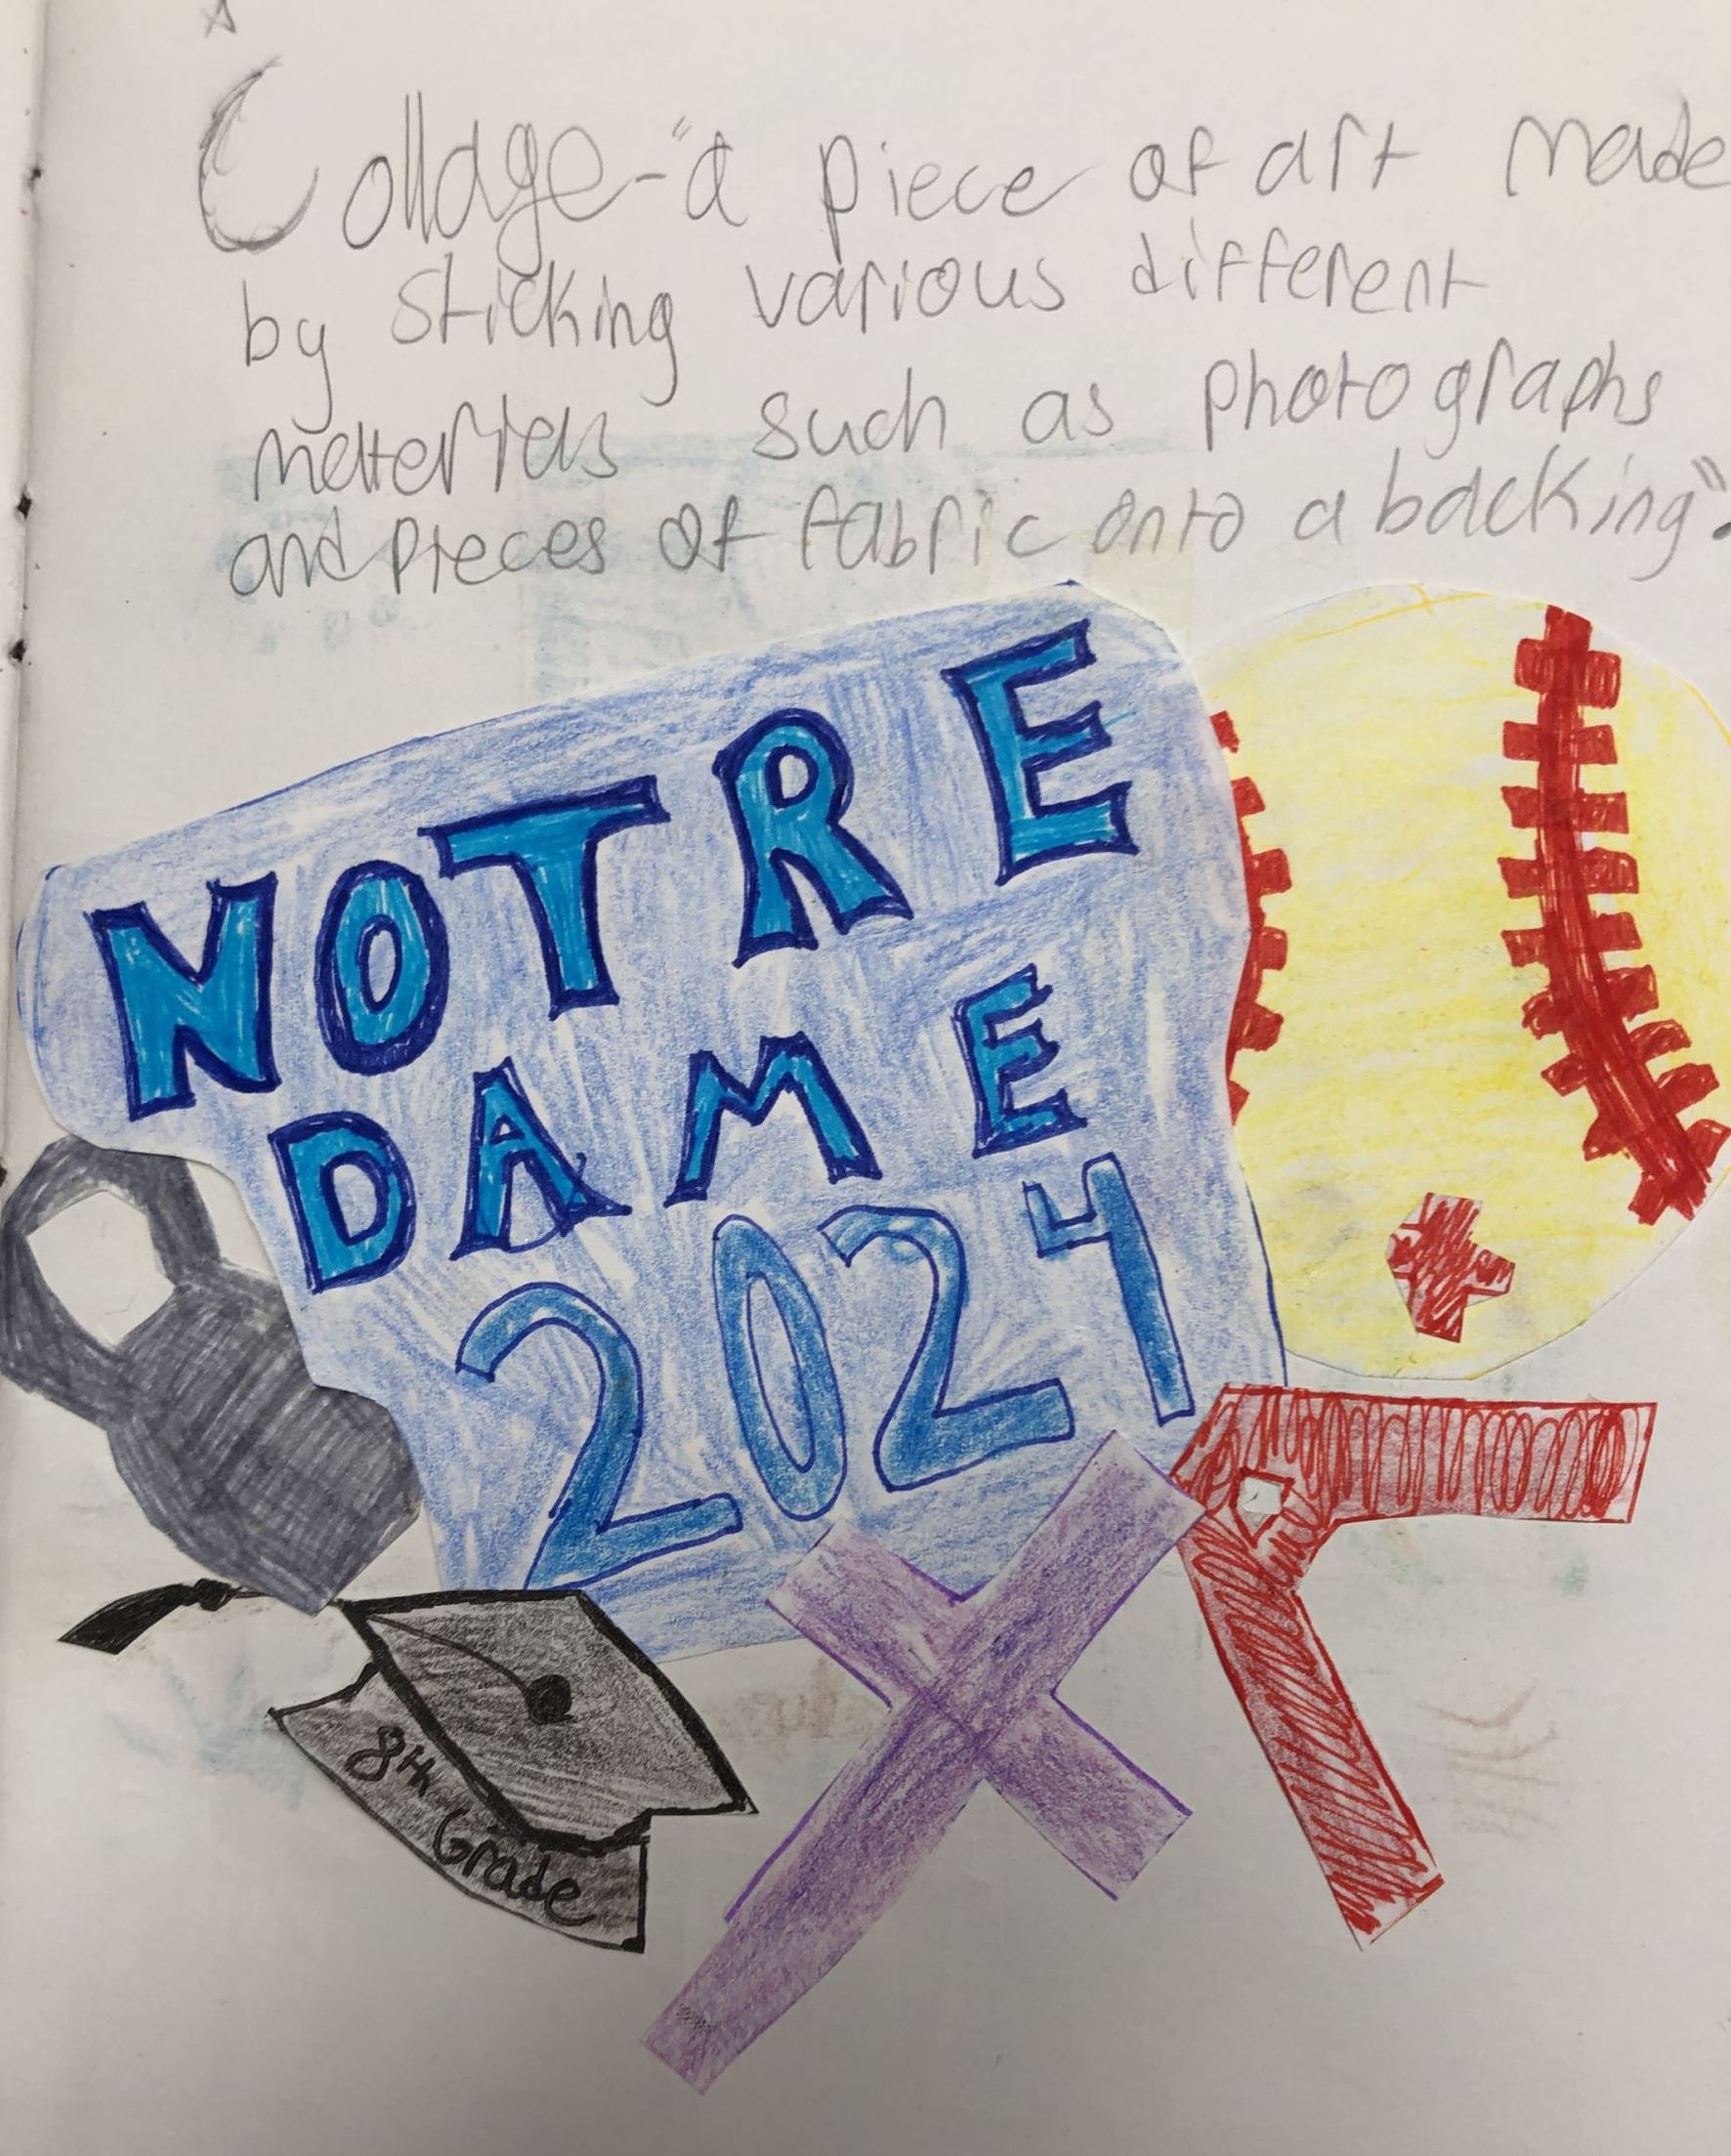 Collage-"a piece of art made
by sticking various different
materials such as photographs
and pieces of fabric onto a backing".
NOTRE
DAME
2024
8th Grade